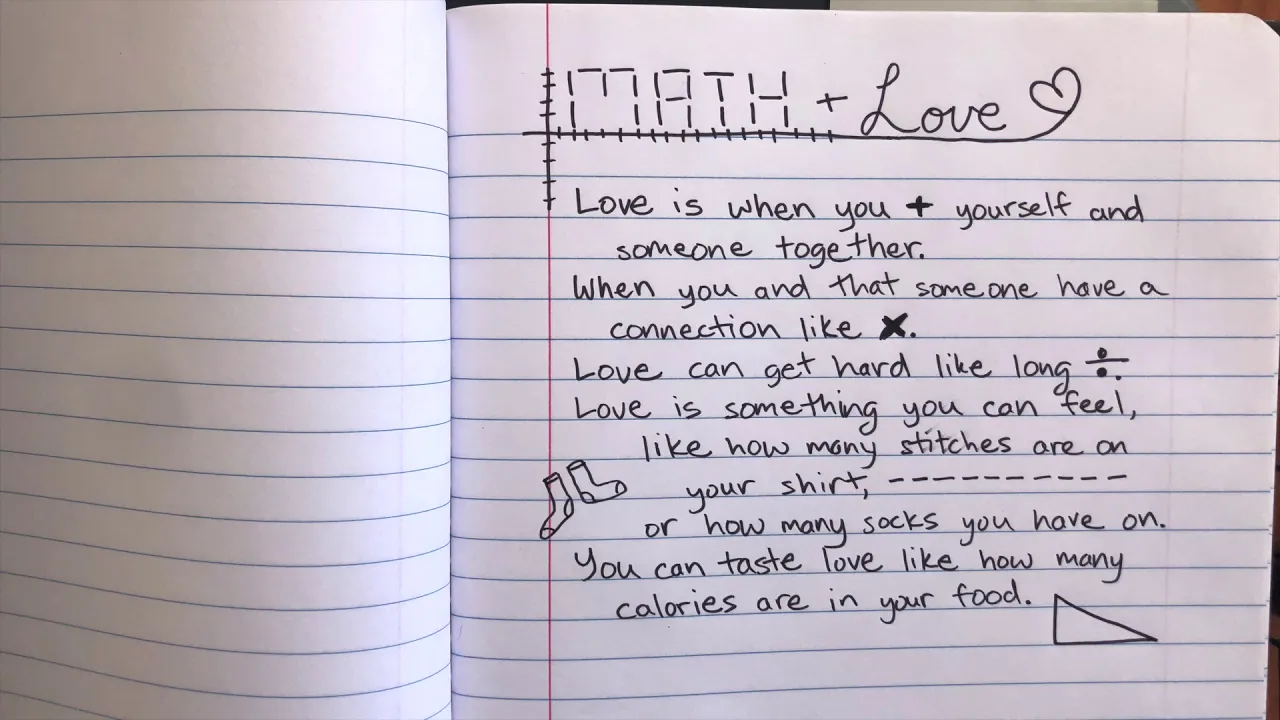 MATH + Love
Love is when you + yourself and
someone together.
When you and that someone have a
connection like ×.
Love can get hard like long ÷.
Love is something you can feel,
like how many stitches are on
your shirt, ----------
or how many socks you have on.
You can taste love like how many
calories are in your food.